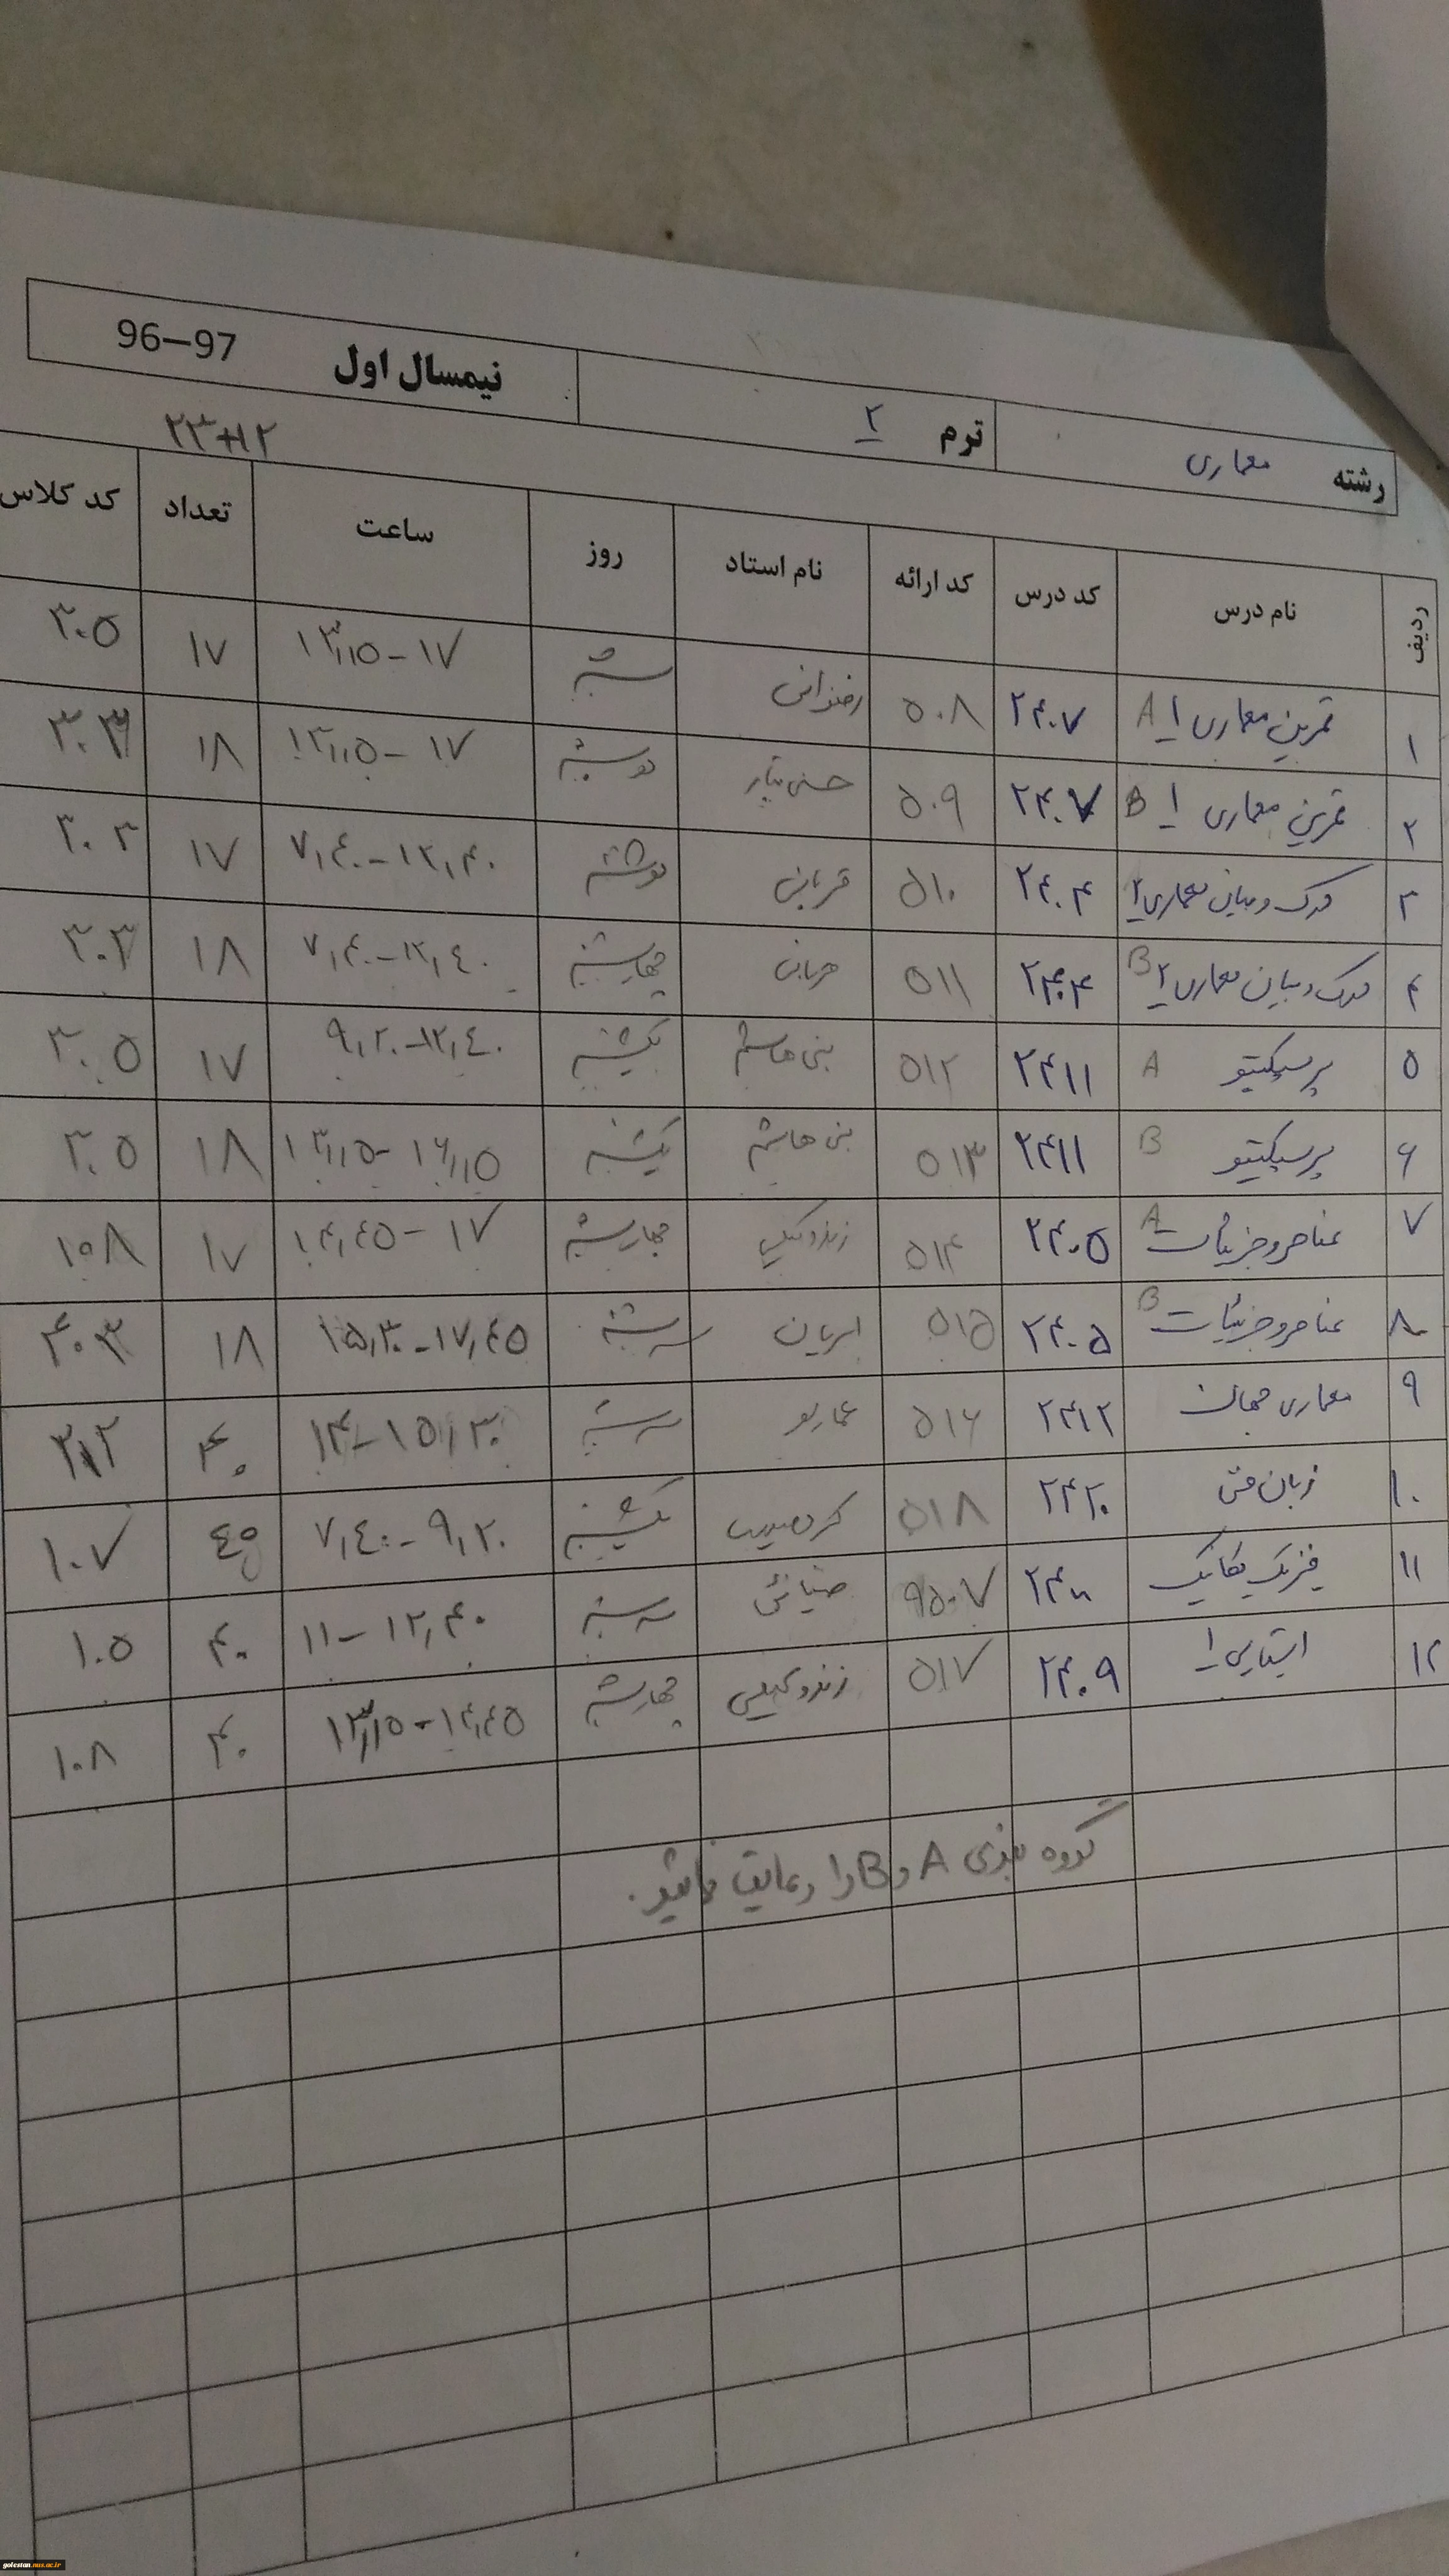 رشته معماری ترم ۲ نیمسال اول 96–97
۲۳+۱۲
ردیف نام درس کد درس کد ارائه نام استاد روز ساعت تعداد کد کلاس
۱ تمرین معماری ۱ A ۲۴۰۷ ۵۰۸ شنبه ۱۳,۱۵-۱۷ ۱۷ ۳۰۵
۲ تمرین معماری ۱ B ۲۴۰۷ ۵۰۹ دوشنبه ۱۳,۱۵-۱۷ ۱۸
۳ درک و بیان معماری ۲ ۲۴۰۴ ۵۱۰ قربانی دوشنبه ۷,۴۰-۱۲,۴۰ ۱۷ ۳۰۳
۴ درک و بیان معماری ۲ B ۲۴۰۴ ۵۱۱ چهارشنبه ۷,۴۰-۱۲,۴۰ ۱۸ ۳۰۳
۵ پرسپکتیو A ۲۴۱۱ ۵۱۲ بنی هاشم یکشنبه ۹,۲۰-۱۲,۴۰ ۱۷ ۳۰۵
۶ پرسپکتیو B ۲۴۱۱ ۵۱۳ بنی هاشم یکشنبه ۱۳,۱۵-۱۶,۱۵ ۱۸ ۳۰۵
۷ عناصر و جزئیات A ۲۴۰۵ ۵۱۴ زندوکیلی چهارشنبه ۱۴,۴۵-۱۷ ۱۷ ۱۰۸
۸ عناصر و جزئیات B ۲۴۰۵ ۵۱۵ سه شنبه ۱۵,۳۰-۱۷,۴۵ ۱۸ ۴۰۳
۹ معماری جهان ۲۴۱۲ ۵۱۶ سه شنبه ۱۴-۱۵,۳۰ ۴۰ ۳۱۲
۱۰ زبان فنی ۲۴۲۰ ۵۱۸ یکشنبه ۷,۴۰-۹,۲۰ ۱۰۷
۱۱ فیزیک مکانیک ۹۵۰۷ ضیائی سه شنبه ۱۱-۱۲,۴۰ ۴۰ ۱۰۵
۱۲ ایستایی ۱ ۲۴۰۹ ۵۱۷ زندوکیلی چهارشنبه ۱۳,۱۵-۱۴,۴۵ ۴۰ ۱۰۸
گروه بندی A و B را رعایت نمائید.
golestan.nus.ac.ir